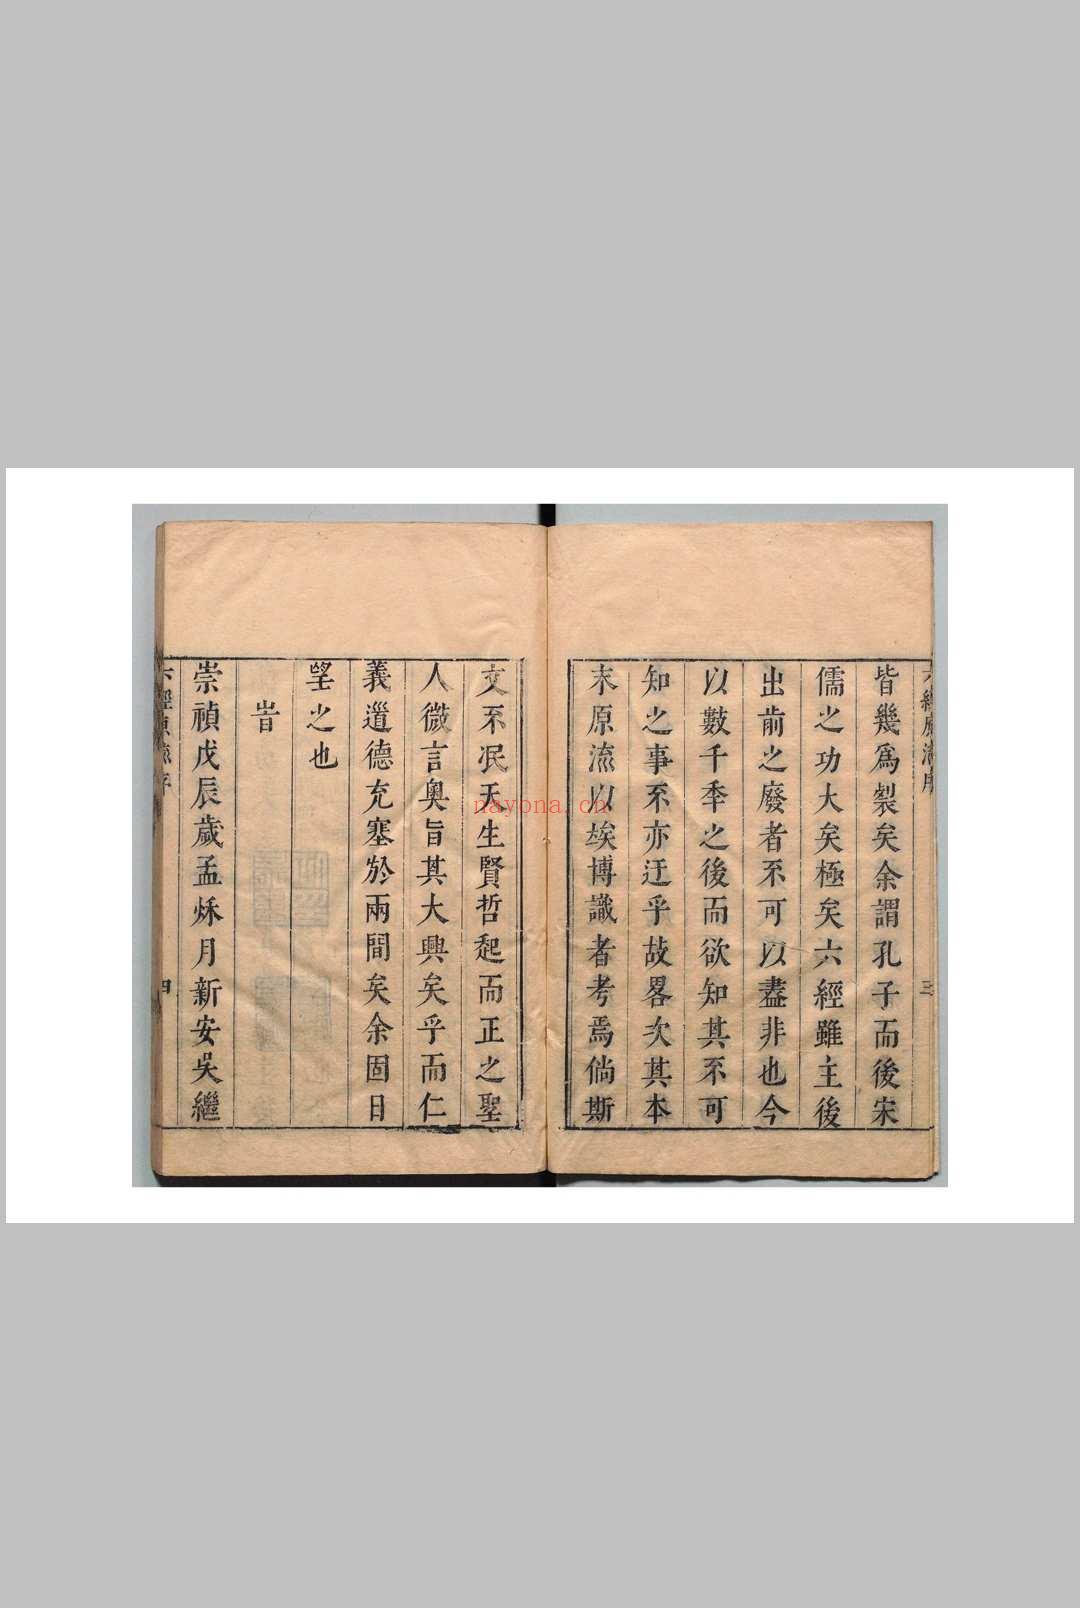 皆幾爲製矣余謂孔子而後宋
儒之功大矣極矣六經雖主後
出前之廢者不可以盡非也今
以數千秊之後而欲知其不可
知之事不亦迂乎故畧次其本
末原流以竢博識者考焉倘斯
文不冺天生賢哲起而正之聖
人微言奥旨其大興矣乎而仁
義道德充塞於兩間矣余固日
望之也
旹
崇禎戊辰歲孟秌月新安吳繼
四
三
nayona.cn